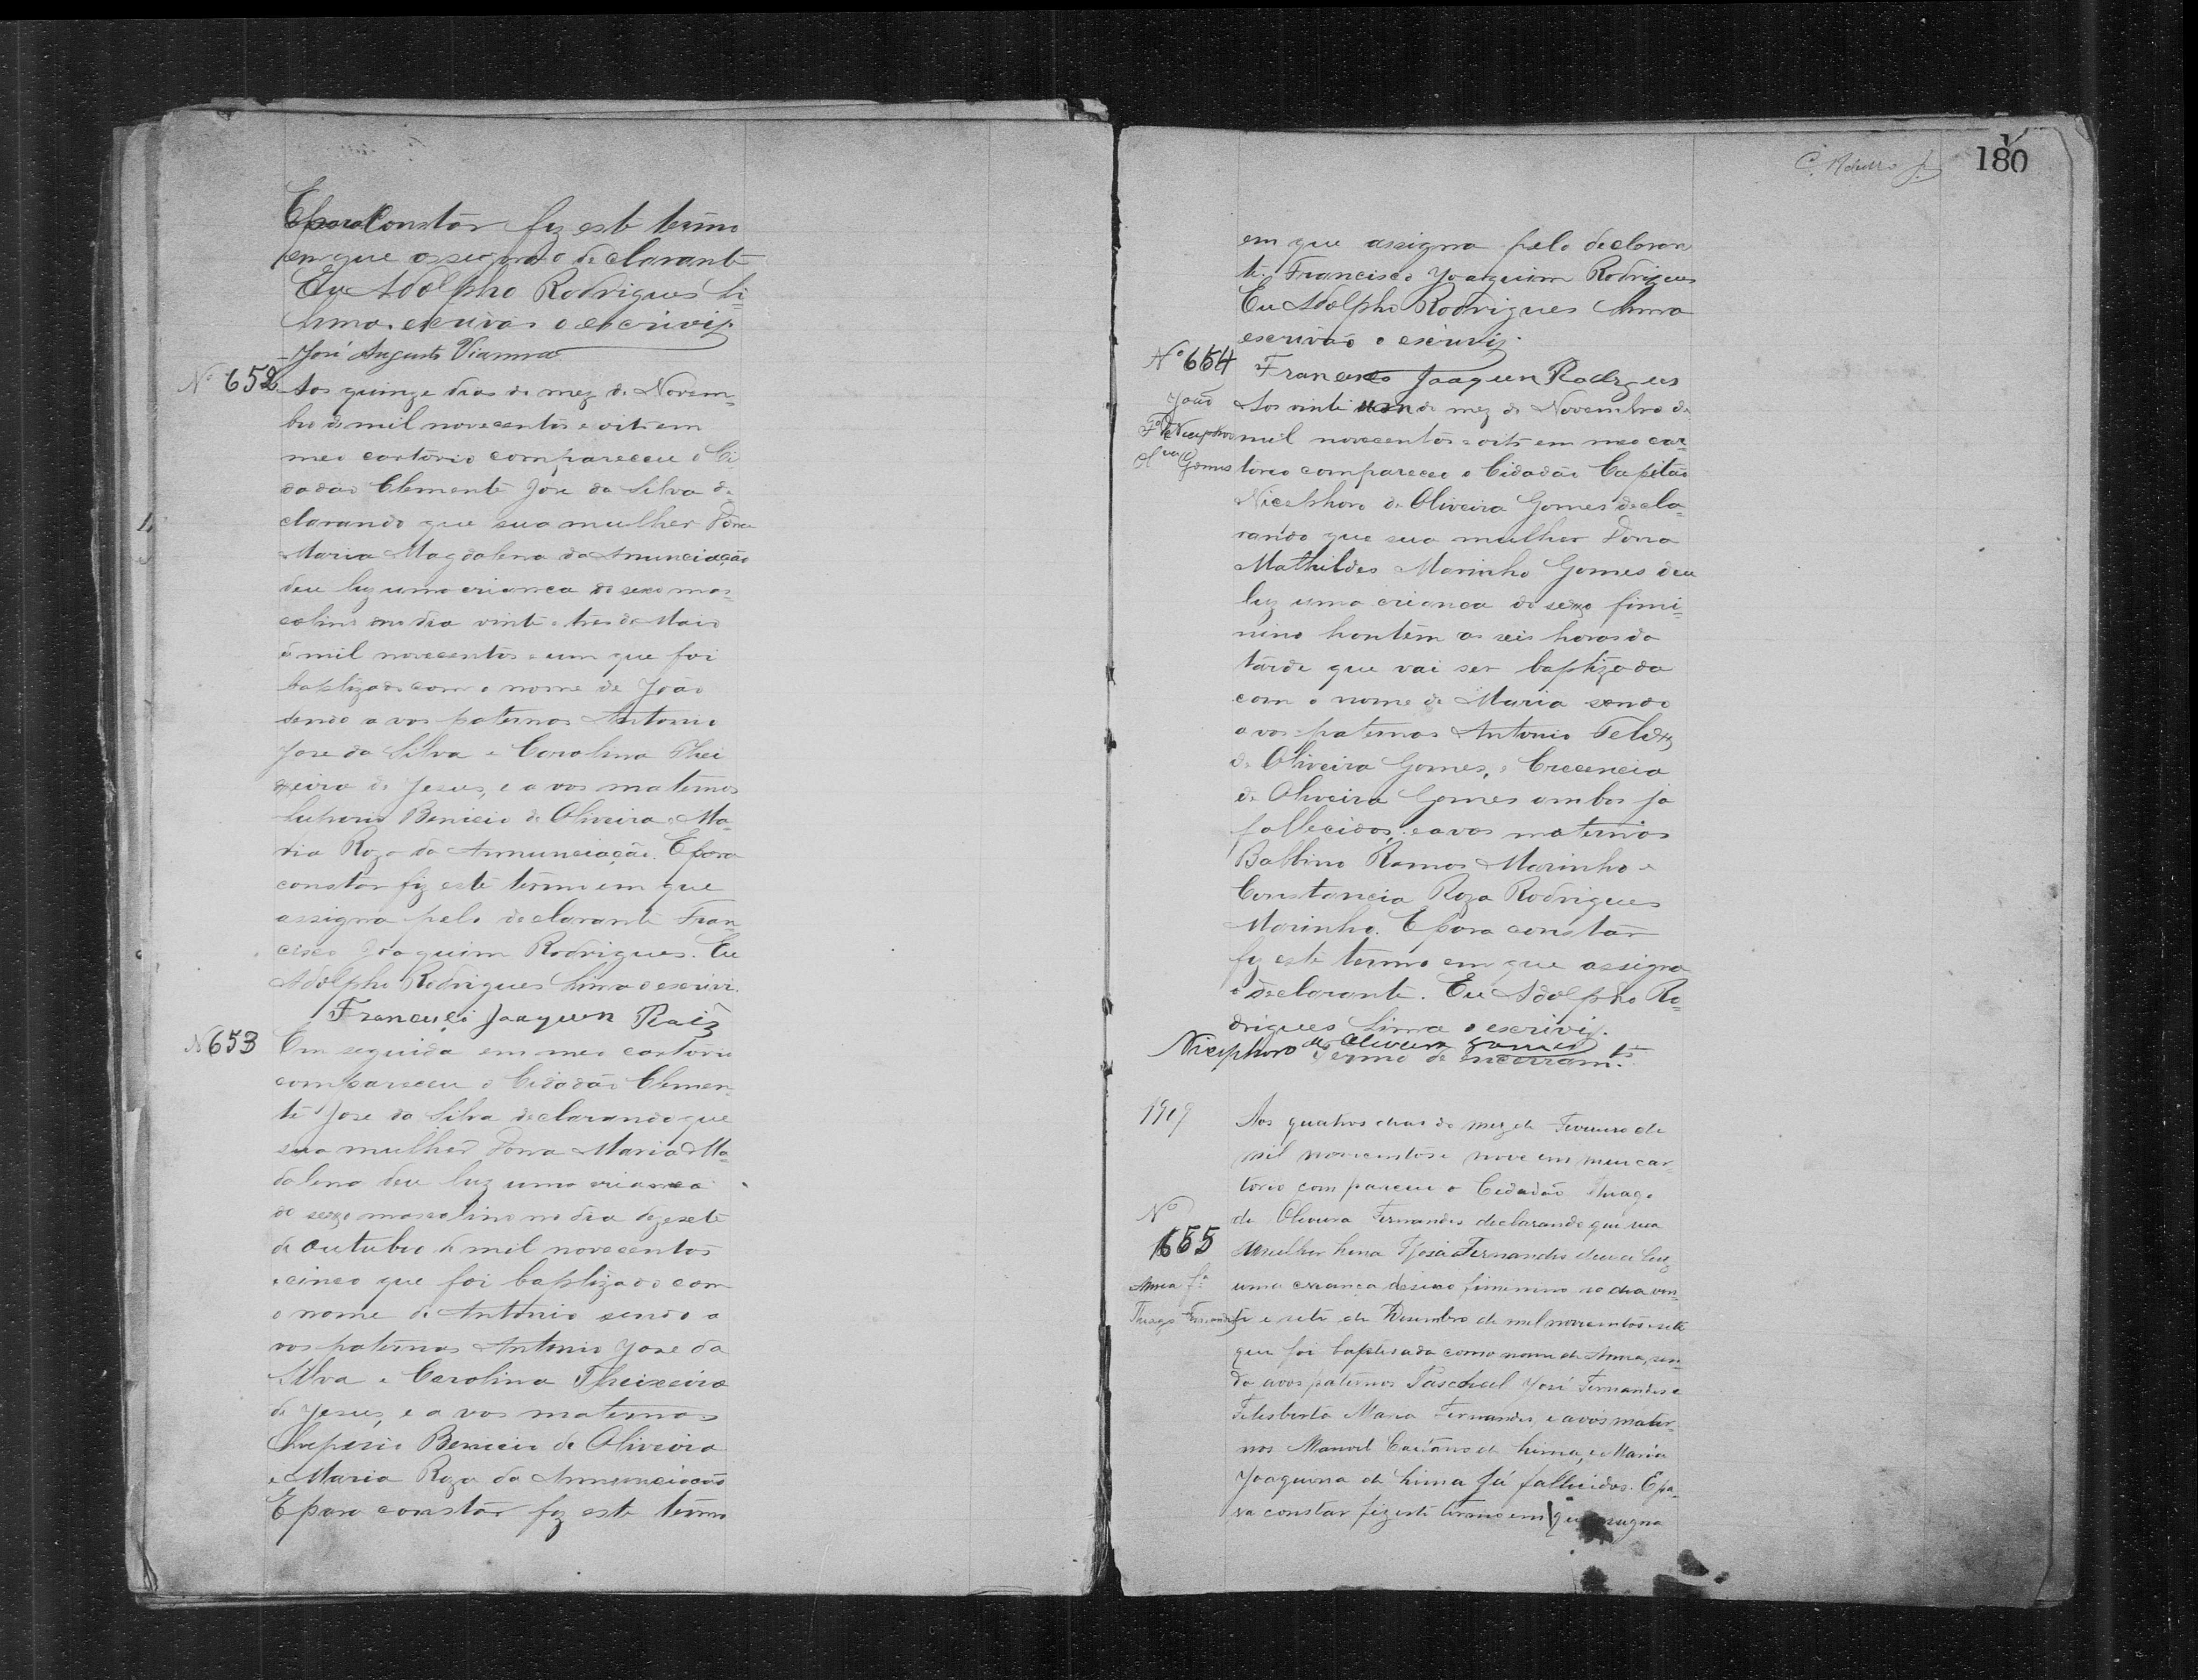 E para Constár fiz este termo
em que assigna o declarante
Eu Adolpho Rodrigues Li-
ma escrivão o escrivij.
José Augusto Vianna
Nº 652 Aos quinze dias do mez de Novem-
bro de mil novecentos e oito em
meo cartório compareceu o Ci
dadão Clemente José da Silva de
clarando que sua mulher Dona
Maria Magdalena da Anunciação
deu luz uma crianca do sexo mas-
colino no dia vinte e tres de Maio
de mil novecentos e um que foi
baptizado com o nome de João
sendo avos paternos Antonio
Jose da Silva e Carolina Thei
xeira de Jesus, e avos maternos
Benicio de Oliveira e Ma-
ria Roza da Annunciação. E para
constár fiz este termo em que
assigna pelo declarante Fran-
cisco Joaquim Rodrigues. Eu
Adolpho Rodrigues Lima o escrivi.
Joaquin
Nº 653 Em seguida em meo cartório
compareceu o Cidadão Clemen-
te Jose da Silva declarando que
sua mulher Dona Maria Ma-
dalena deu luz uma crianca
do sexo mascolino no dia dezesete
de Outubro de mil novecentos
e cinco que foi baptizado com
o nome de Antonio sendo a
vos paternos Antonio Jose da
Silva e Carolina Theixeira
de Jesus, e avos maternos
Benicio de Oliveira
e Maria Roza da Annunciacão
E para constár fiz este termo
180
em que assigna pelo declaran
te Francisco Joaquim Rodrigues
Eu Adolpho Rodrigues Lima
escrivão o escrivij.
Nº 654
Joaquin
João
Aos vinte um do mez de Novembro de
mil novecentos e oito em meo car-
Gomes
torio compareceo o Cidadão Capitão
Nicephoro de Oliveira Gomes decla-
rando que sua mulher Dona
Mathildes Marinho Gomes deu
luz uma crianca do sexo fimi-
nino hontem as seis horas da
tarde que vai ser baptizada
com o nome de Maria sendo
avos paternos Antonio
de Oliveira Gomes, e Crecencia
de Oliveira Gomes ambos ja
fallecidos; e avos maternos
Balbino Ramos Marinho e
Constancia Roza Rodrigues
Marinho. E para constar
fiz este termo em que assigna
o declarante. Eu Adolpho Ro-
drigues Lima o escrivij.
Nicephoro de Oliveira Gomes
Termo de encerramto
1909
Aos quatros dias do mez de Fevereiro de
mil novecentos e nove em meu car-
torio compareceu o Cidadão Thiago
Nº
de Oliveira Fernandes declarando que sua
655
mulher Fernandes deu a luz
Anna fª
uma criança do sexo fiminino no dia vin-
Thiago Fernandes
te e sete de Desembro de mil novecentos e sete
que foi baptisada com o nome de Anna, sen-
do avos paternos Paschoal José Fernandes e
Maria Fernandes, e avós mater-
nos Manoel Caetano de Lima, e Maria
Joaquina de Lima já fallecidos. E pa-
ra constar fiz este termo em que assigna